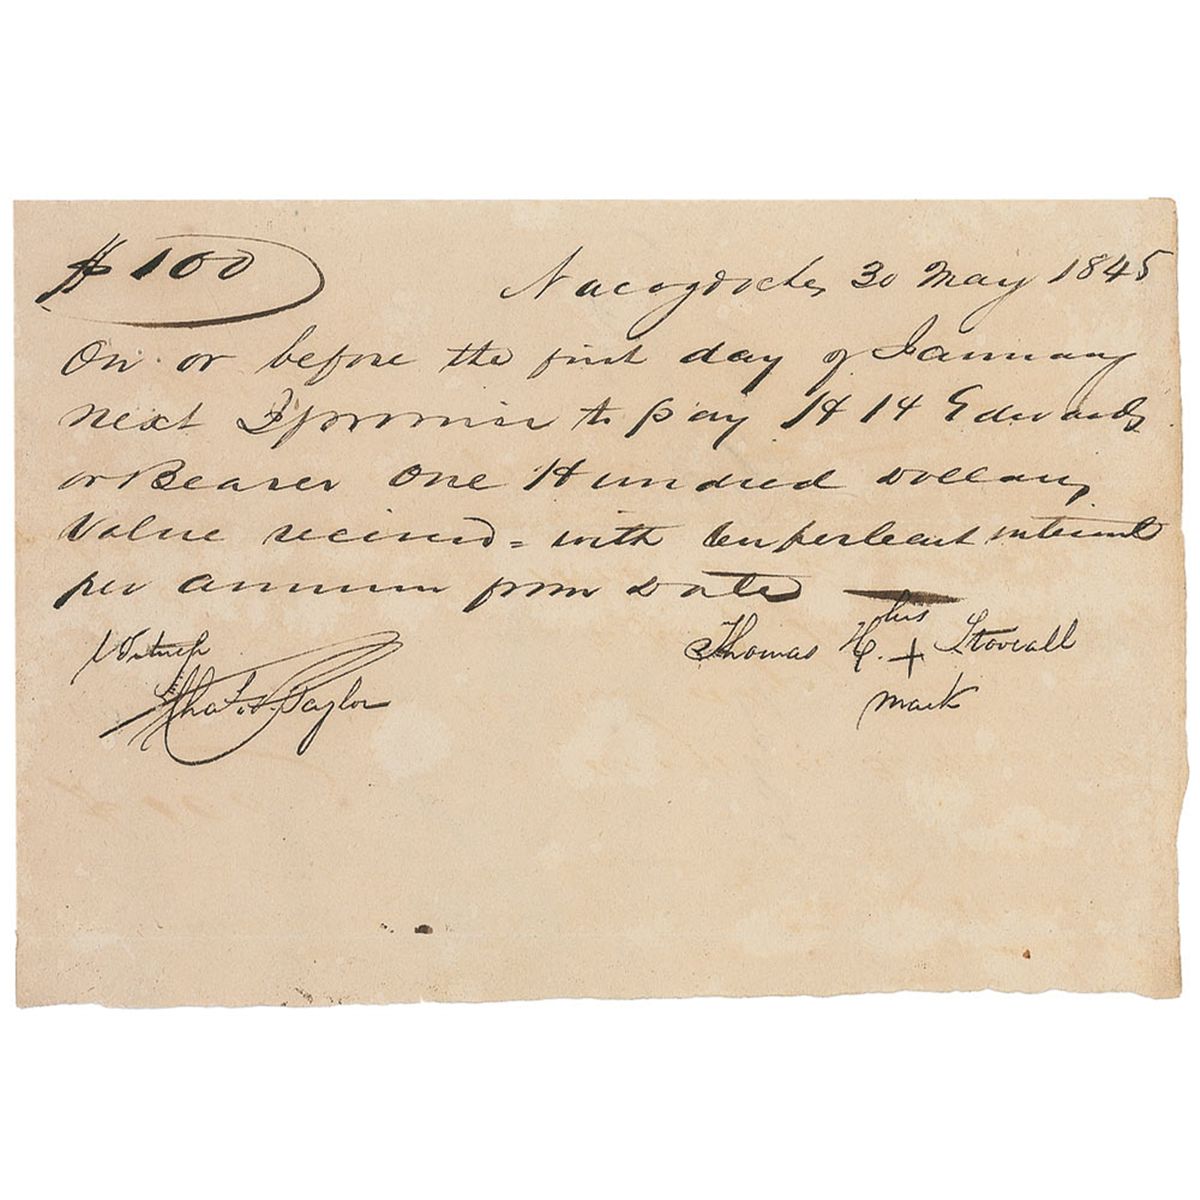 $100
Nacogdoches 30 May 1845
On or before the first day of January
next I promise to pay H H Edwards
or Bearer One Hundred Dollars
Value recieved = with ten per cent interest
per annum from Date
Witness
Chas. S. Taylor
his
Thomas H. + Stovall
mark